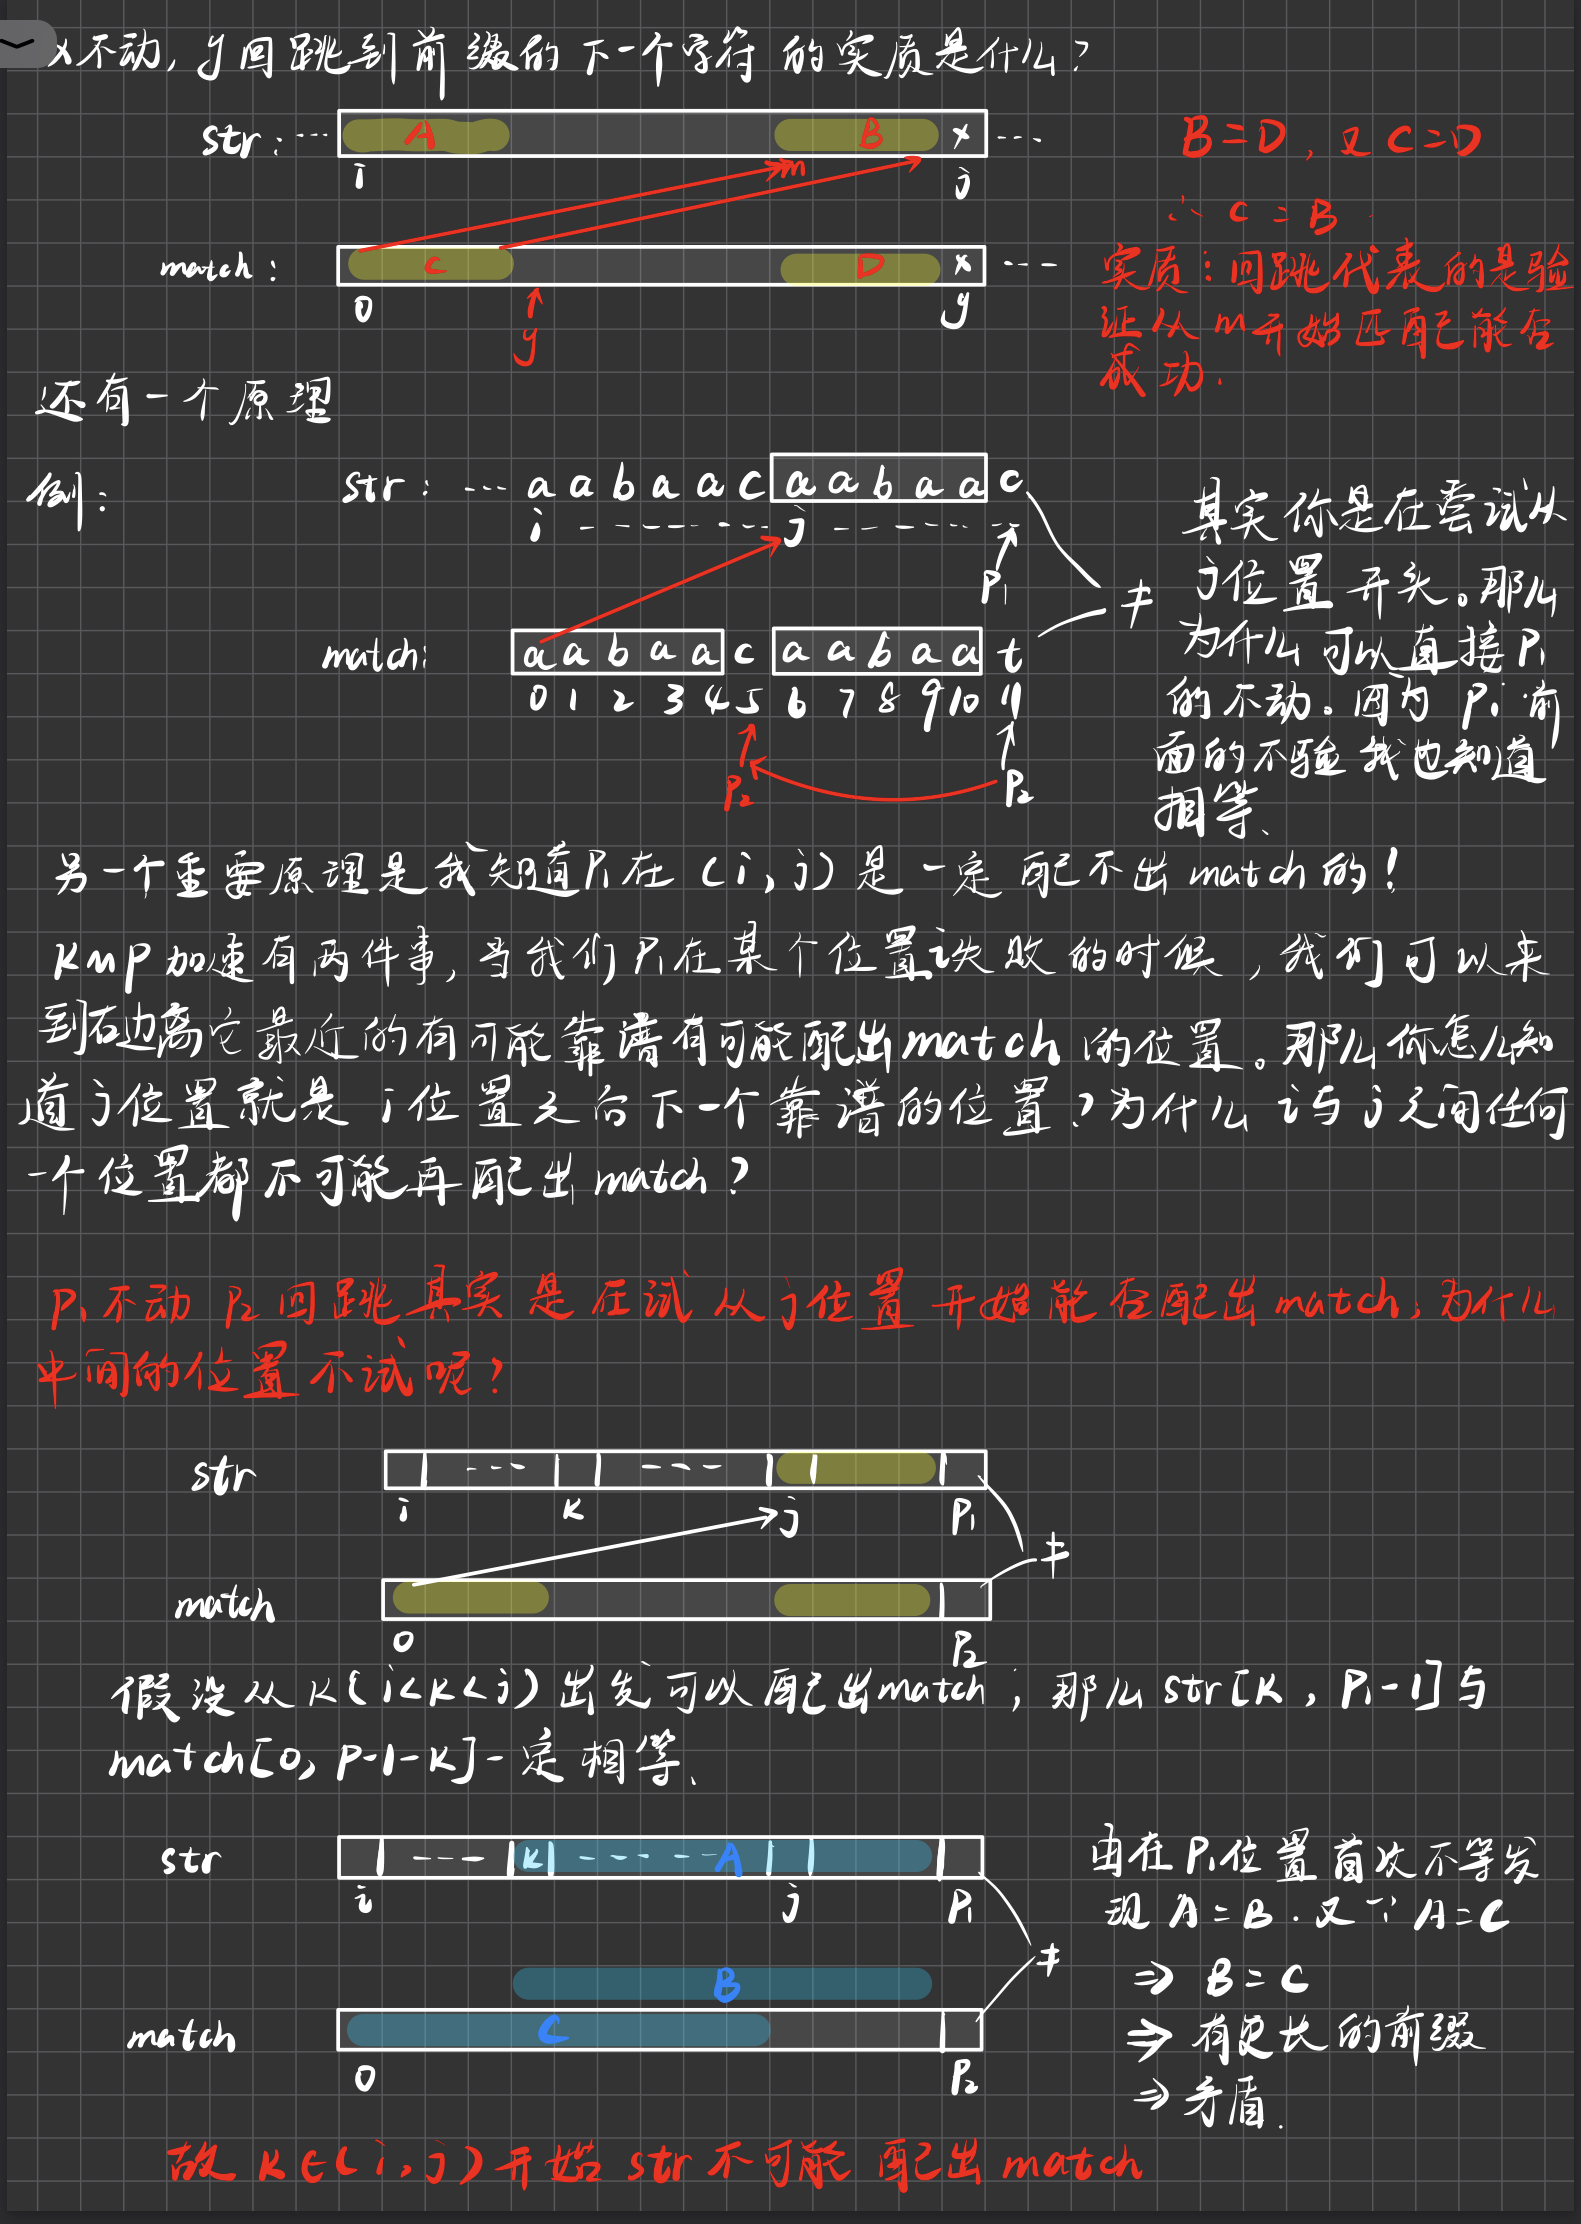 x不动，y回跳到前缀的下一个字符的实质是什么？
str：··· A B x ···
i m j
B=D，又C=D
∴ C=B
match： C D x ···
0 y y
实质：回跳代表的是验
证从m开始匹配能否
成功．
还有一个原理
例：
str：··· a a b a a c a a b a a c
i j
P1
match: a a b a a c a a b a a t
0 1 2 3 4 5 6 7 8 9 10 11
P2 P2
≠
其实你是在尝试从
j位置开头。那么
为什么可以直接P1
的不动。因为P1前
面的不验我也知道
相等、
另一个重要原理是我知道P1在（i，j）是一定配不出match的！
KMP加速有两件事，当我们P1在某个位置i失败的时候，我们可以来
到右边离它最近的有可能靠谱有可能配出match的位置。那么你怎么知
道j位置就是i位置之后下一个靠谱的位置？为什么i与j之间任何
一个位置都不可能再配出match？
P1不动P2回跳其实是在试从j位置开始能否配出match，为什么
中间的位置不试呢？
str
i K j P1
≠
match
0 P2
假设从K（i<K<j）出发可以配出match，那么str[K，P1-1]与
match[0，P-1-K]一定相等、
str K A
i j P1
≠
B
match C
0 P2
由在P1位置首次不等发
现A=B．又∵A=C
⇒ B=C
⇒ 有更长的前缀
⇒ 矛盾．
故K∈（i，j）开始str不可能配出match